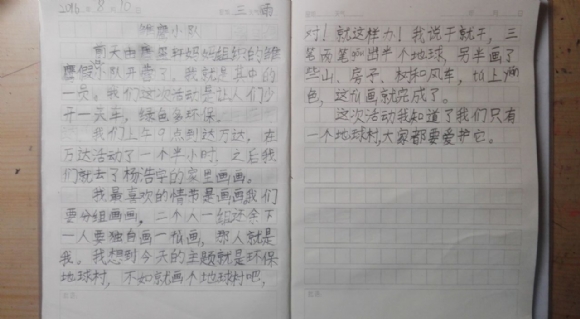 2016年8月10日 三 雨
雏鹰小队
前天由
鹰假小队开营了,我就是其中的
一员。我们这次活动是让人们少
开一天车,绿色多环保。
我们上午9点到达万达,在
万达活动了一个半小时,之后我
们就去了杨浩宇的家里画画。
我最喜欢的情节是画画,我们
要分组画画,二个人一组还余下
一人要独自画一幅画,那人就是
我。我想到今天的主题就是环保
地球村,不如就画个地球村吧,
对!就这样办!我说干就干,三
笔两笔画出半个地球,另半画了
些山、房子、树和风车,加上颜
色,这幅画就完成了。
这次活动我知道了我们只有
一个地球村,大家都要爱护它。